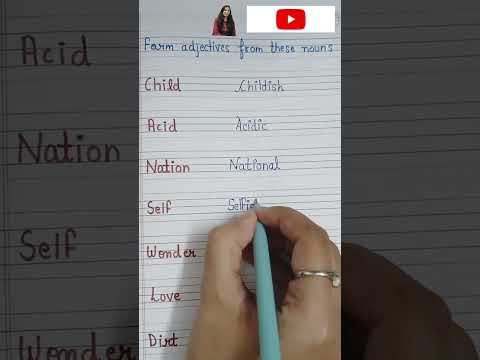 Form adjectives from these nouns
Child Childish
Acid Acidic
Nation National
Self
Wonder
Love
Dirt
Acid
Nation
Self
Wonder